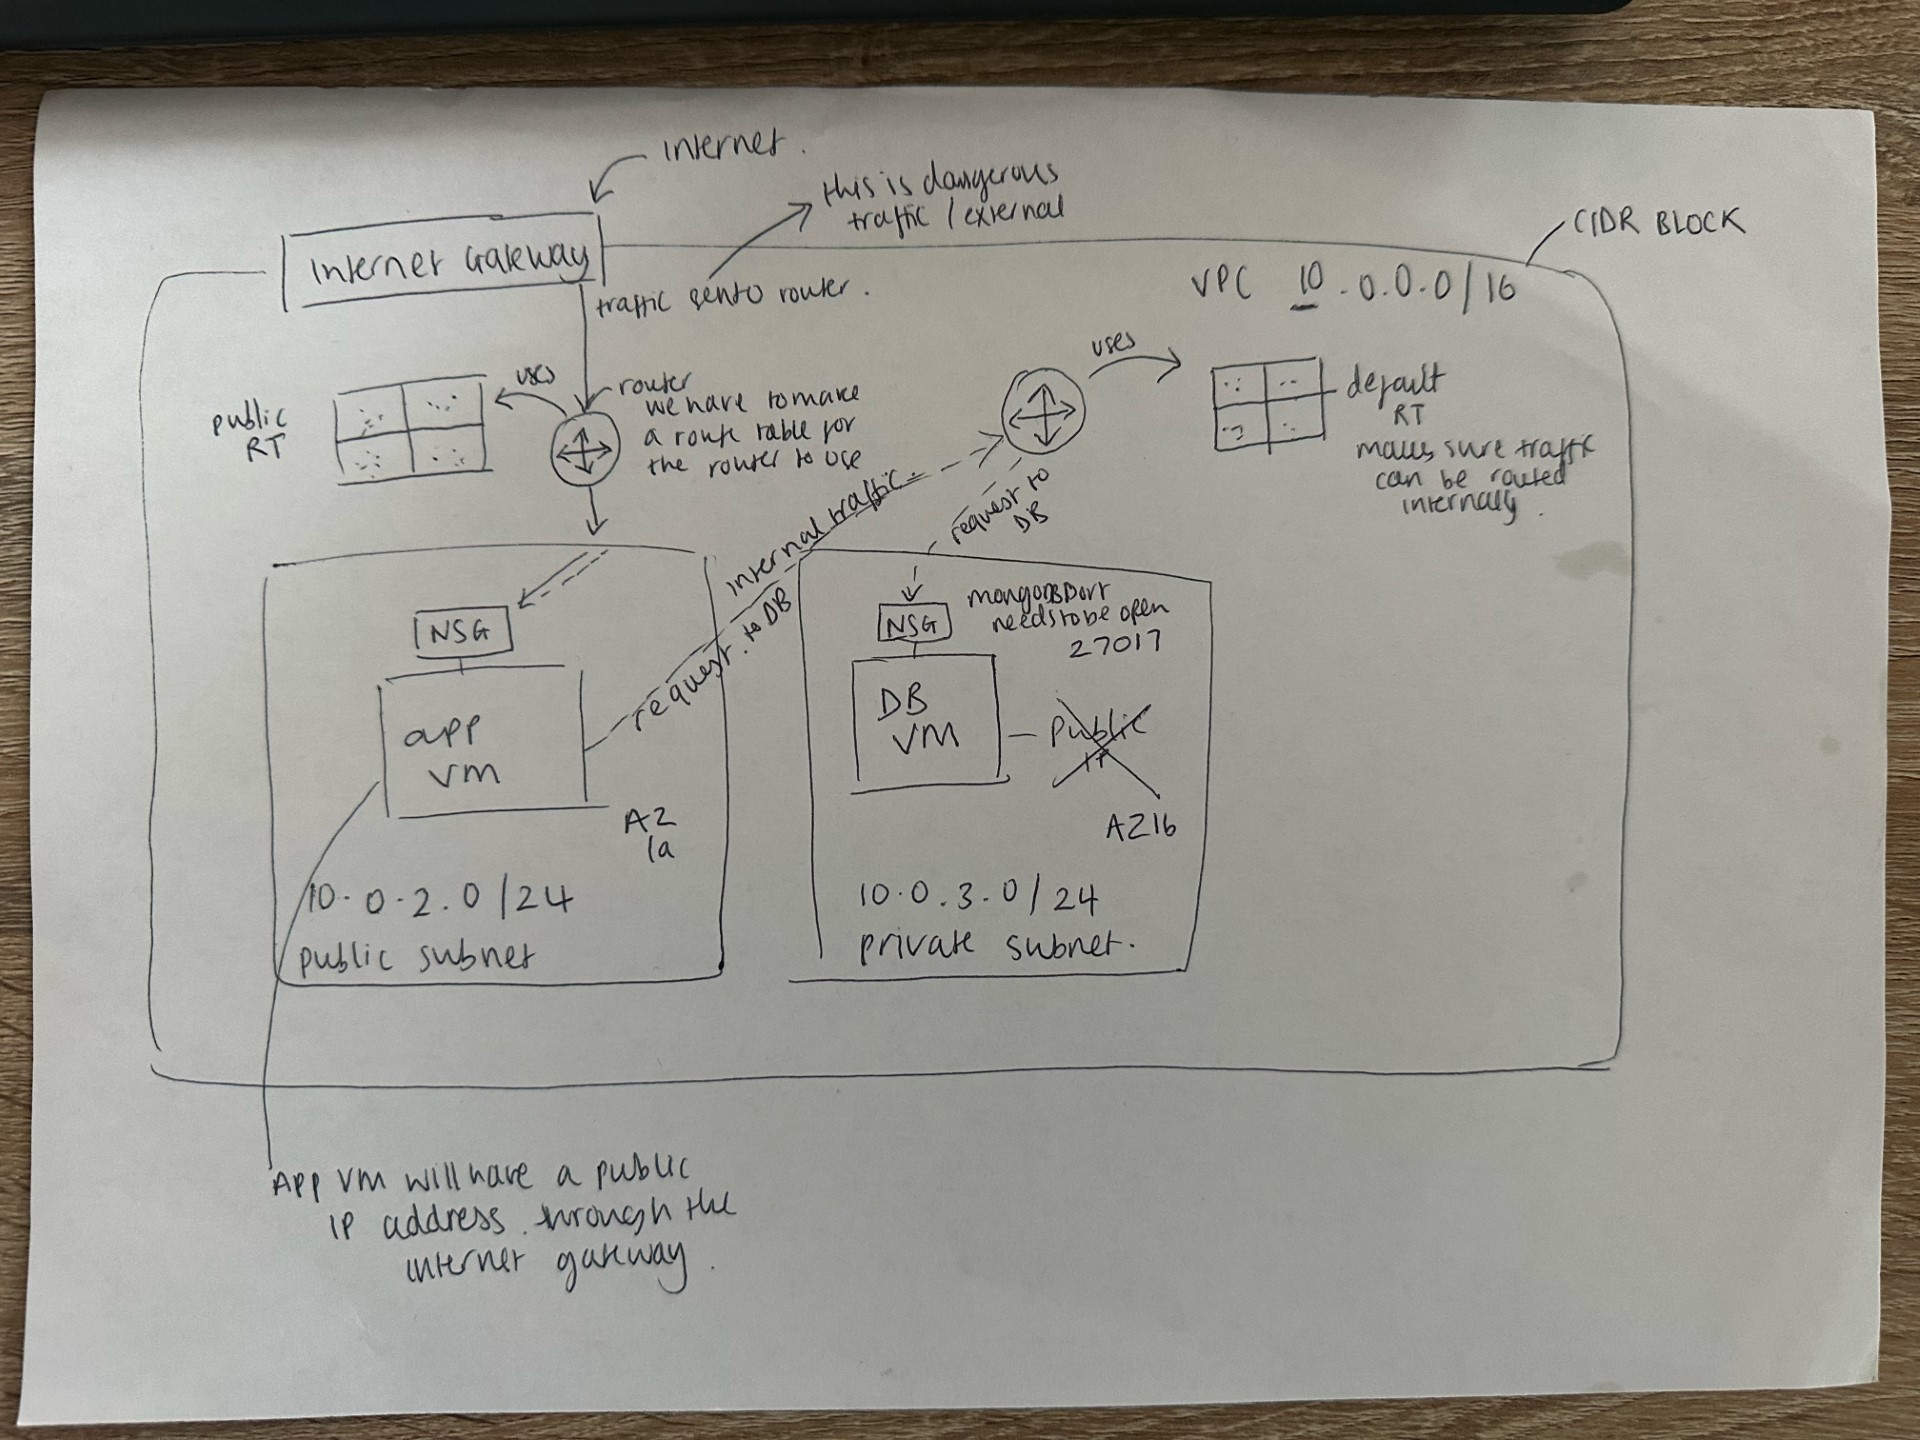 internet.
this is dangerous
traffic / external
CIDR BLOCK
Internet Gateway
traffic sent to router.
VPC 10.0.0.0/16
uses
public
RT
router
we have to make
a route table for
the router to use
uses
default
RT
makes sure traffic
can be routed
internally.
internal traffic.
request to DB
request to
DB
NSG
app
VM
AZ
1a
10.0.2.0/24
public subnet
NSG
mongoDB port
needs to be open
27017
DB
VM
Public
IP
AZ1b
10.0.3.0/24
private subnet.
APP VM will have a public
IP address through the
internet gateway.